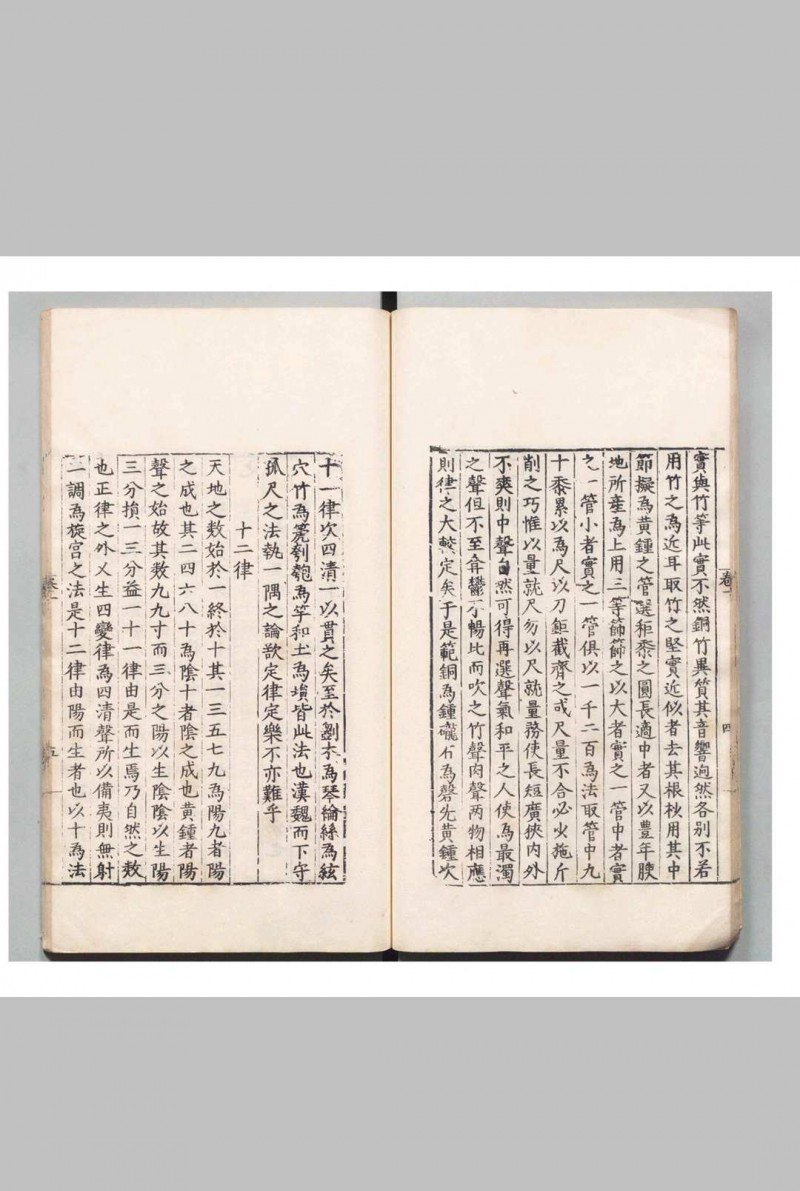 實與竹等此實不然銅竹異質其音響逈然各别不若
用竹之為近耳取竹之堅實近似者去其根杪用其中
節擬為黃鍾之管選秬黍之圓長適中者又以豐年腴
地所産為上用三等篩篩之以大者實之一管中者實
之一管小者實之一管俱以一千二百為法取管中九
十黍累以為尺以刀鉅截齊之或尺量不合必火施斤
削之巧惟以量就尺勿以尺就量務使長短廣狹内外
不爽則中聲自然可得再選聲氣和平之人使為最濁
之聲但不至弇鬱不暢比而吹之竹聲肉聲两物相應
則律之大槩定矣于是範銅為鍾礲石為磬先黃鍾次
卷一
四
十一律次四清一以貫之矣至於劉木為琴綸絲為絃
穴竹為箎匏為竽和土為塤皆此法也漢魏而下守
孤尺之法執一隅之論欲定律定樂不亦難乎
十二律
天地之数始於一終於十其一三五七九為陽九者陽
之成也其二四六八十為陰十者陰之成也黃鍾者陽
聲之始故其数九九寸而三分之陽以生陰陰以生陽
三分損一三分益一十一律由是而生焉乃自然之数
也正律之外又生四變律為四清聲所以備夷則無射
二調為旋宫之法是十二律由陽而生者也以十為法
卷一
五